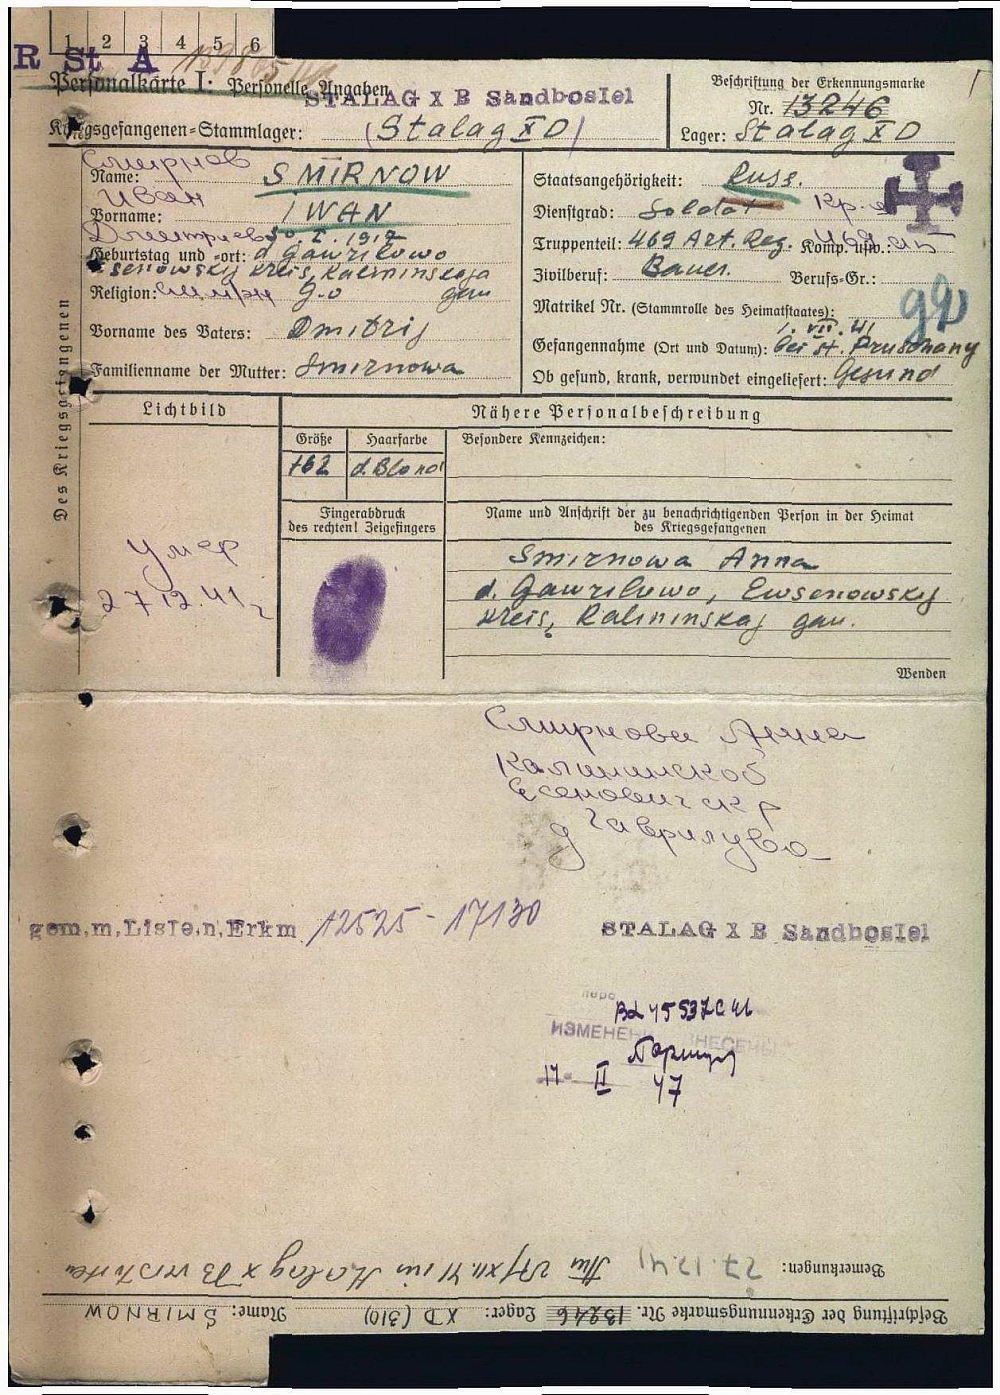 1 2 3 4 5 6
R St A
Personalkarte I: Personelle Angaben
STALAG X B Sandbostel
Beschriftung der Erkennungsmarke
Nr. 13246
Kriegsgefangenen-Stammlager: (Stalag X D)
Lager: Stalag X D
Des Kriegsgefangenen
Смирнов
Name: SMIRNOW
Иван
Vorname: IWAN
Дмитриев
Geburtstag und -ort: d. Gawrilowo
kreis, Kalininskaja
Religion: g.o gau
Vorname des Vaters: Dmitrij
Familienname der Mutter: Smirnowa
Staatsangehörigkeit: Russ.
Dienstgrad: Soldat
Truppenteil: 469 Art. Reg. Komp. usw.:
Zivilberuf: Bauer. Berufs-Gr.:
Matrikel Nr. (Stammrolle des Heimatstaates):
1. VII. 41
Gefangennahme (Ort und Datum): bei st. Pruschany
Ob gesund, krank, verwundet eingeliefert: Gesund
Lichtbild
Nähere Personalbeschreibung
Größe Haarfarbe Besondere Kennzeichen:
162 d. Blond
Fingerabdruck
des rechten! Zeigefingers
Name und Anschrift der zu benachrichtigenden Person in der Heimat
des Kriegsgefangenen
умер
27 12. 41 г
Smirnowa Anna
d. Gawrilowo, Ewsenowskij
kreis, Kalininskaj gau.
Wenden
Смирнова Анна
Калининской
Есеновичск р
д Гаврилуво
gem.m.Liste.n.Erkm 12525 - 17130
STALAG X B Sandbostel
17 II 47
Bemerkungen: 27.12.41 Am 27/XII.41 im Stalag X B verstorben
Beschriftung der Erkennungsmarke Nr. 13246 Lager: X D (310) Name: SMIRNOW